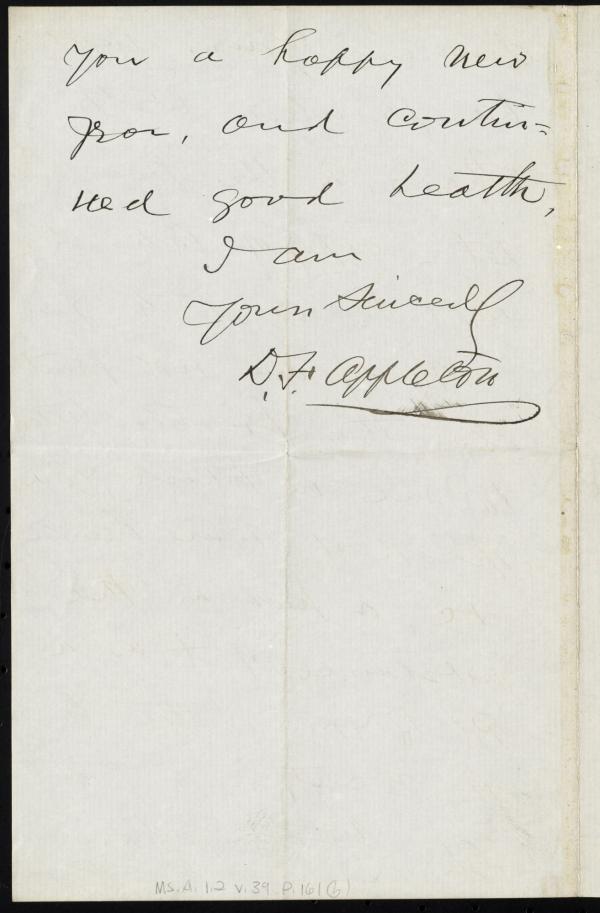 you a happy new
year, and contin=
ued good health,
I am
Yours sincerely
D. F. Appleton
MS. A. 1.2 v. 39. P. 161 (b)